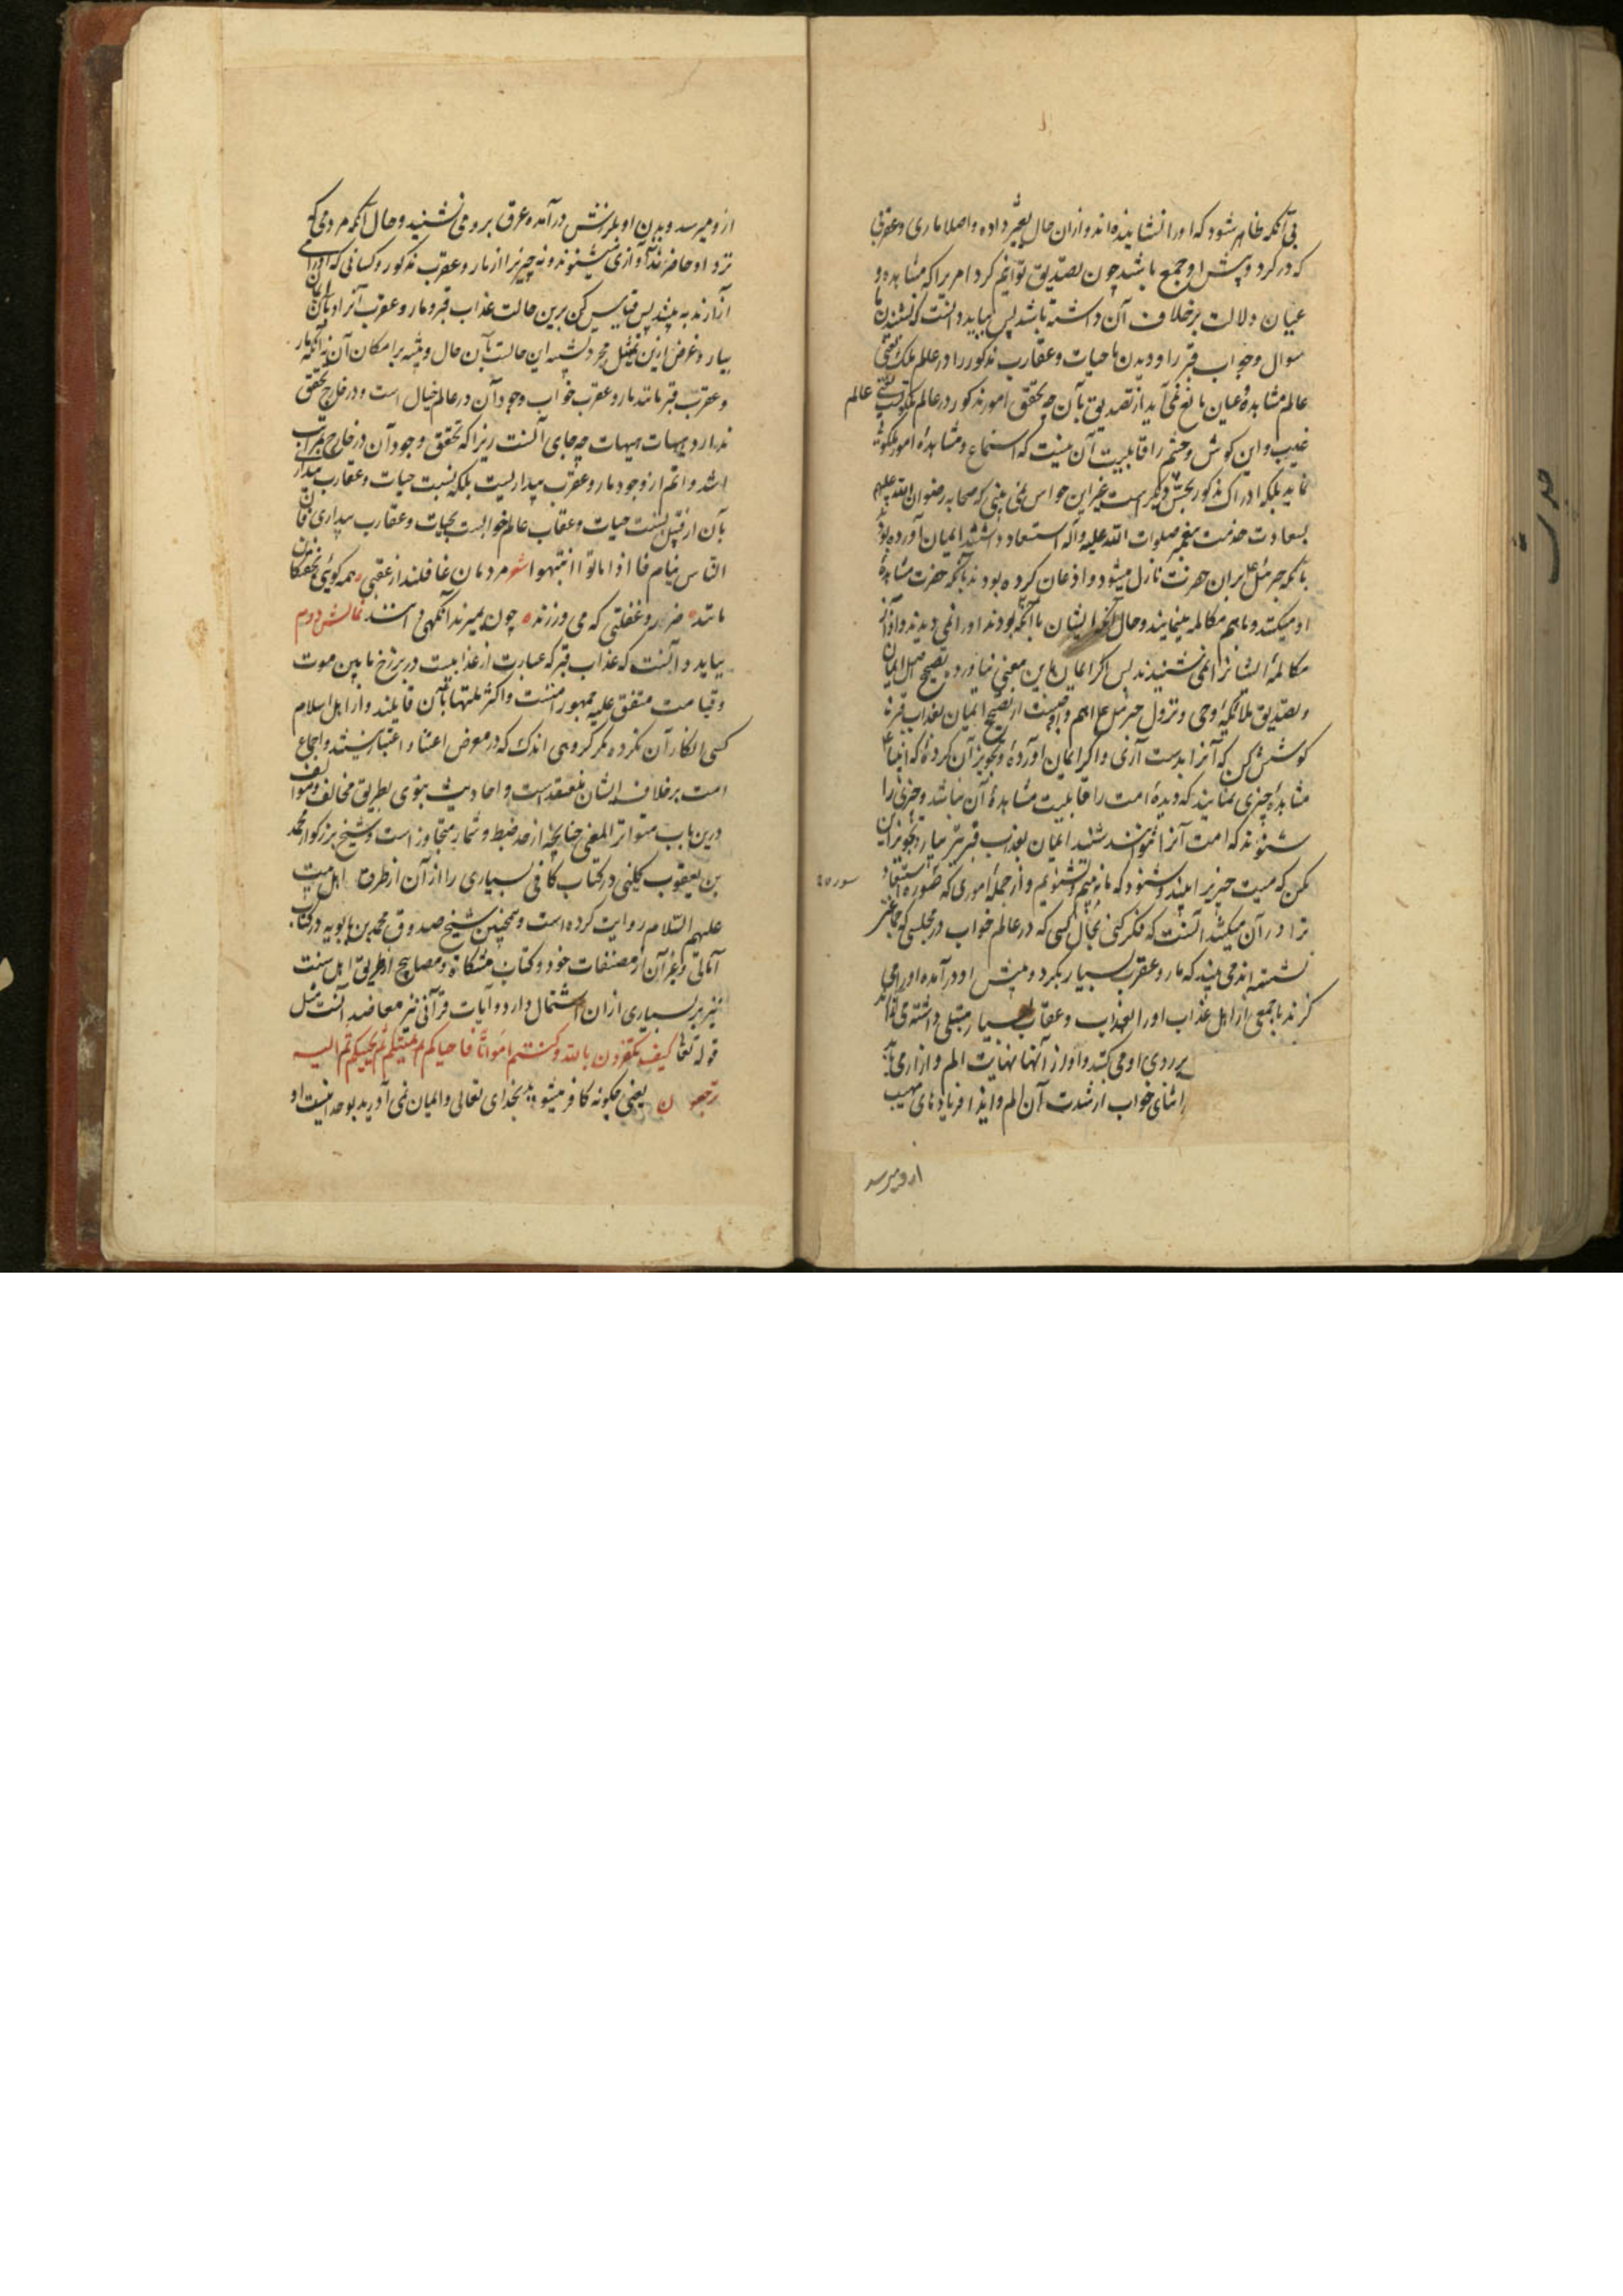 بی آنکه ظاهر شود که او را نشانیده‌اند و ازان حال تغیر داده و اصلا ماری و عقربی
که در گرد و پیش او جمع باشد چون تصدیق توانیم کرد امریرا که مشاهده و
عیان دلالت برخلاف آن داشته باشد پس بباید دانست که نشنیدن ما
سوال و جواب قبر را و دیدن ما حیات و عقارب مذکور را در عالم ملک یعنی
عالم مشاهده و عیان مانع نمی آید از تصدیق بآن چه تحقق امور مذکور در عالم ملکوتست یعنی عالم
غیب و این کوش و چشم را قابلیت آن نیست که استماع و مشاهدهٔ امور ملکوتی
نماید بلکه ادراک مذکور بحس دیگر است غیر این حواس نمی بینی که صحابه رضوان الله علیهم
بسعادت خدمت پیغمبر صلوات الله علیه و آله استسعاد داشتند ایمان آورده بودند
بآنکه جبرئیل بران حضرت نازل میشود و اذعان کرده بودند بآنکه حضرت مشاهدهٔ
او میکند و باهم مکالمه مینمایند و حال آنکه ایشان با آنکه بودند او را نمی دیدند و آواز
مکالمهٔ ایشانرا نمی شنیدند پس اگر ایمان باین معنی نیاورد تصحیح اصل ایمان
و تصدیق ملائکه و وحی و نزول جبرئیل ع اهم و اوجبست از تصحیح ایمان بعذاب قبر
کوشش کن که آنرا بدست آری و اگر ایمان آوردهٔ و تجویز آن کردهٔ که انبیا ع
مشاهدهٔ چیزی نمایند که دیدهٔ امت را قابلیت مشاهدهٔ آن نباشد و چیزی را
شنوند که امت آنرا نتوانند شنید ایمان بعذاب قبر نیز بیار و تجویز این
کن که میت چیز برا بیند و شنود که ما نه بینیم و نشنویم و از جملهٔ اموری که صورة استبعاد
ترا در آن میکشد آنست که فکر کنی بحال کسی که در عالم خواب در مجلسی که جماعتی
نشسته اند می بیند که مار و عقرب بسیار بگرد و پیش او در آمده او را می
گزند با جمعی از اهل عذاب او را بعذاب و عقاب بسیار مبتلی داشته
بر روی او می کشند و او از آنها نهایت الم و آزار می یابد
در اثنای خواب از شدت آن الم و ایذا فریادهای مهیب
ازو میرسد
ازو میرسد و بدن او بلرزش در آمده عرق برو می نشیند و حال آنکه مردمی که
نزد او حاضرند نه آوازی میشنوند و نه چیزیرا از مار و عقرب مذکور و کسانی که او را می
آزارند به بینند پس قیاس کن برین حالت عذاب قبر و مار و عقرب آنرا و بآن ایمان
بیار و غرض ازین تمثیل مجرد تشبیه این حالست بآن حال و تنبیه بر امکان آن نه آنکه مار
و عقرب قبر مانند مار و عقرب خواب وجود آن در عالم خیال است و در خارج تحقق
ندارد هیهات هیهات چه جای آنست زیرا که تحقق وجود آن در خارج بمراتب
اشد و اتم از وجود مار و عقرب بیداریست بلکه نسبت حیات و عقارب بیداری
بآن از قبیل نسبت حیات و عقارب عالم خوابست بحیات و عقارب بیداری فان
الناس نیام فاذا ماتوا انتبهوا شعر مردمان غافلند از عقبی همه کوئی بخفتکان
مانند ضرر و غفلتی که می ورزند چون بمیرند آنکهی دانند نمایش دوم
بباید دانست که عذاب قبر که عبارت از عذابیست در برزخ ما بین موت
و قیامت متفق علیه جمهور امتست و اکثر ملتها بآن قایلند و از اهل اسلام
کسی انکار آن نکرده مگر کروهی اندک که در معرض اعتنا و اعتبار نیستند و اجماع
امت برخلاف ایشان منعقد است و احادیث نبوی بطریق مخالف و موالف
درین باب متواتر المعنی چنانچه از حد ضبط و شمار متجاوز است و شیخ بزرکوار محمد
بن یعقوب کلینی در کتاب کافی بسیاری را از آن از طرق اهل بیت
علیهم السلام روایت کرده است و همچنین شیخ صدوق محمد بن بابویه در کتاب
امالی و غیر آن از مصنفات خود و کتاب مشکاة و مصابیح از طریق اهل سنت
نیز بر بسیاری از ان اشتمال دارد و آیات قرآنی نیز معاضد آنست مثل
قوله تعالی کیف تکفرون بالله و کنتم امواتا فاحیاکم ثم یمیتکم ثم یحییکم ثم الیه
ترجعون یعنی چکونه کافر میشوید بخدای تعالی و ایمان نمی آورید بوحدانیت او